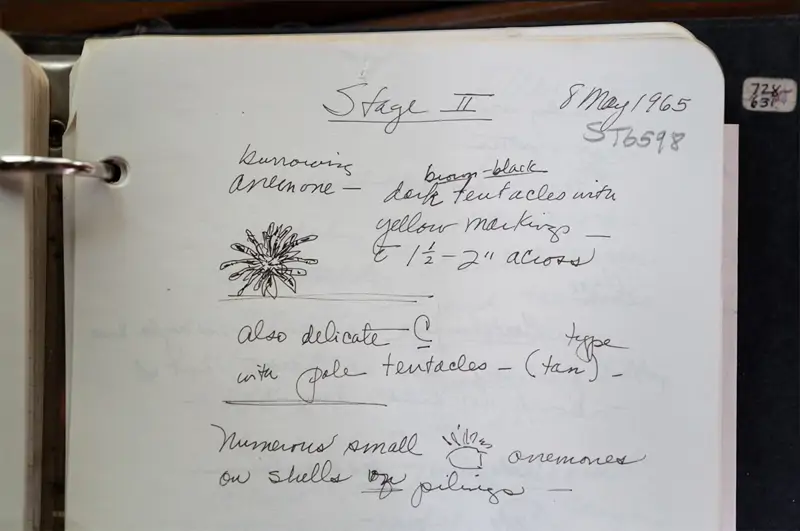 Stage II
8 May 1965
ST6598
728-
631
burrowing
anemone —
brown-black
dark tentacles with
yellow markings —
1 1/2 - 2" across
also delicate C
type
with pale tentacles - (tan) -
Numerous small anemones
on shells on pilings —